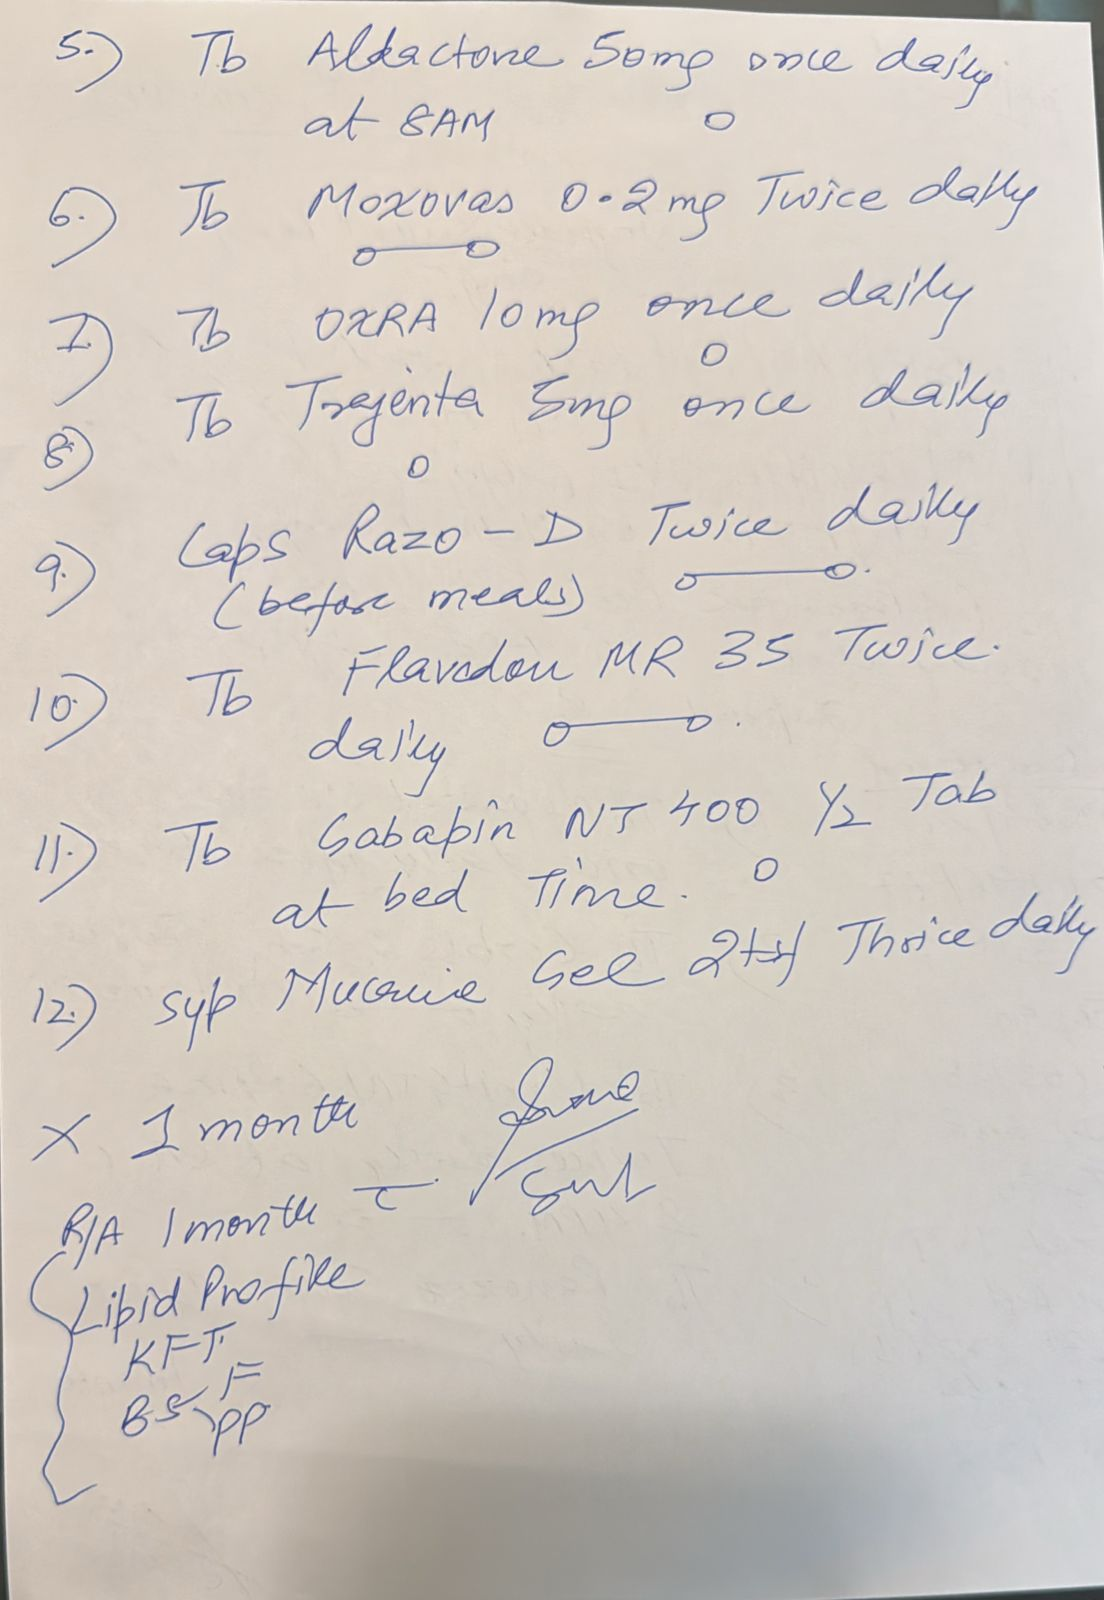 5.) Tb Aldactone 50mg once daily
at 8AM
6.) Tb Moxovas 0.2mg Twice daily
7.) Tb OXRA 10mg once daily
8) Tb Trajenta 5mg once daily
9.) Caps Razo-D Twice daily
(before meals)
10.) Tb Flavedon MR 35 Twice
daily
11.) Tb Gabapin NT 400 1/2 Tab
at bed Time.
12.) Syp Mucaine Gel 2tsf Thrice daily
x 1 month
R/A 1 month c̄
Lipid Profile
KFT
BS F
PP